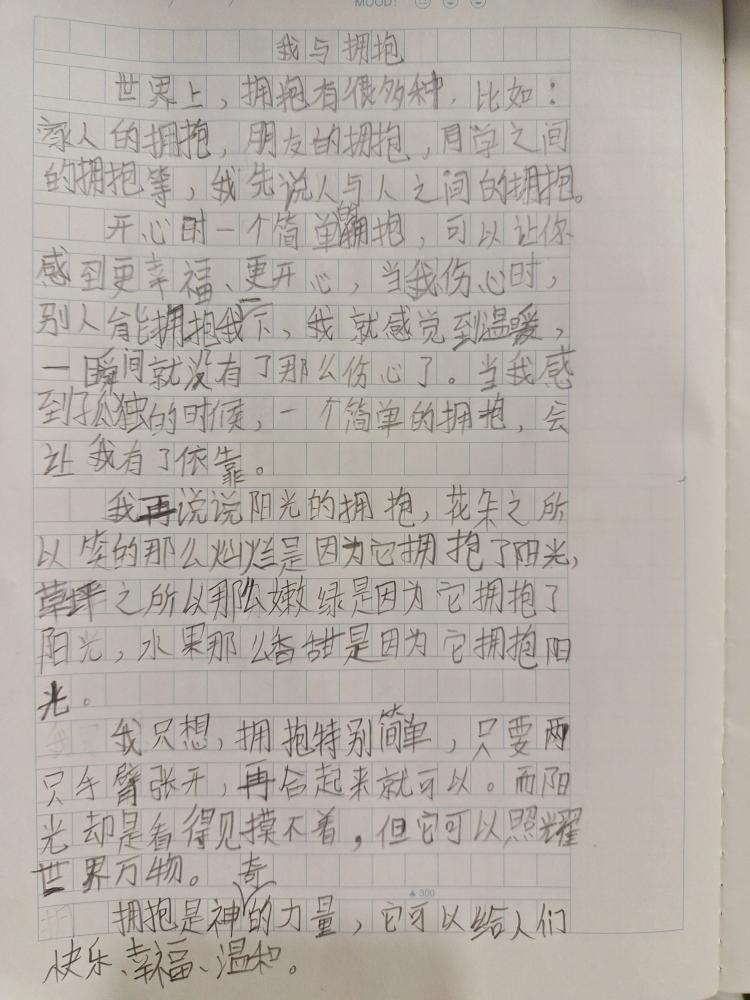 MOOD:
我与拥抱
世界上，拥抱有很多种，比如：
家人的拥抱，朋友的拥抱，同学之间
的拥抱等，我先说人与人之间的拥抱。
开心时一个简单的拥抱，可以让你
感到更幸福、更开心，当我伤心时，
别人能拥抱我一下，我就感觉到温暖，
一瞬间就没有了那么伤心了。当我感
到孤独的时候，一个简单的拥抱，会
让我有了依靠。
我再说说阳光的拥抱，花朵之所
以笑的那么灿烂是因为它拥抱了阳光，
草坪之所以那么嫩绿是因为它拥抱了
阳光，水果那么香甜是因为它拥抱阳
光。
我只想，拥抱特别简单，只要两
只手臂张开，再合起来就可以。而阳
光却是看得见摸不着，但它可以照耀
世界万物。
▲300
拥抱是神奇的力量，它可以给人们
快乐、幸福、温和。